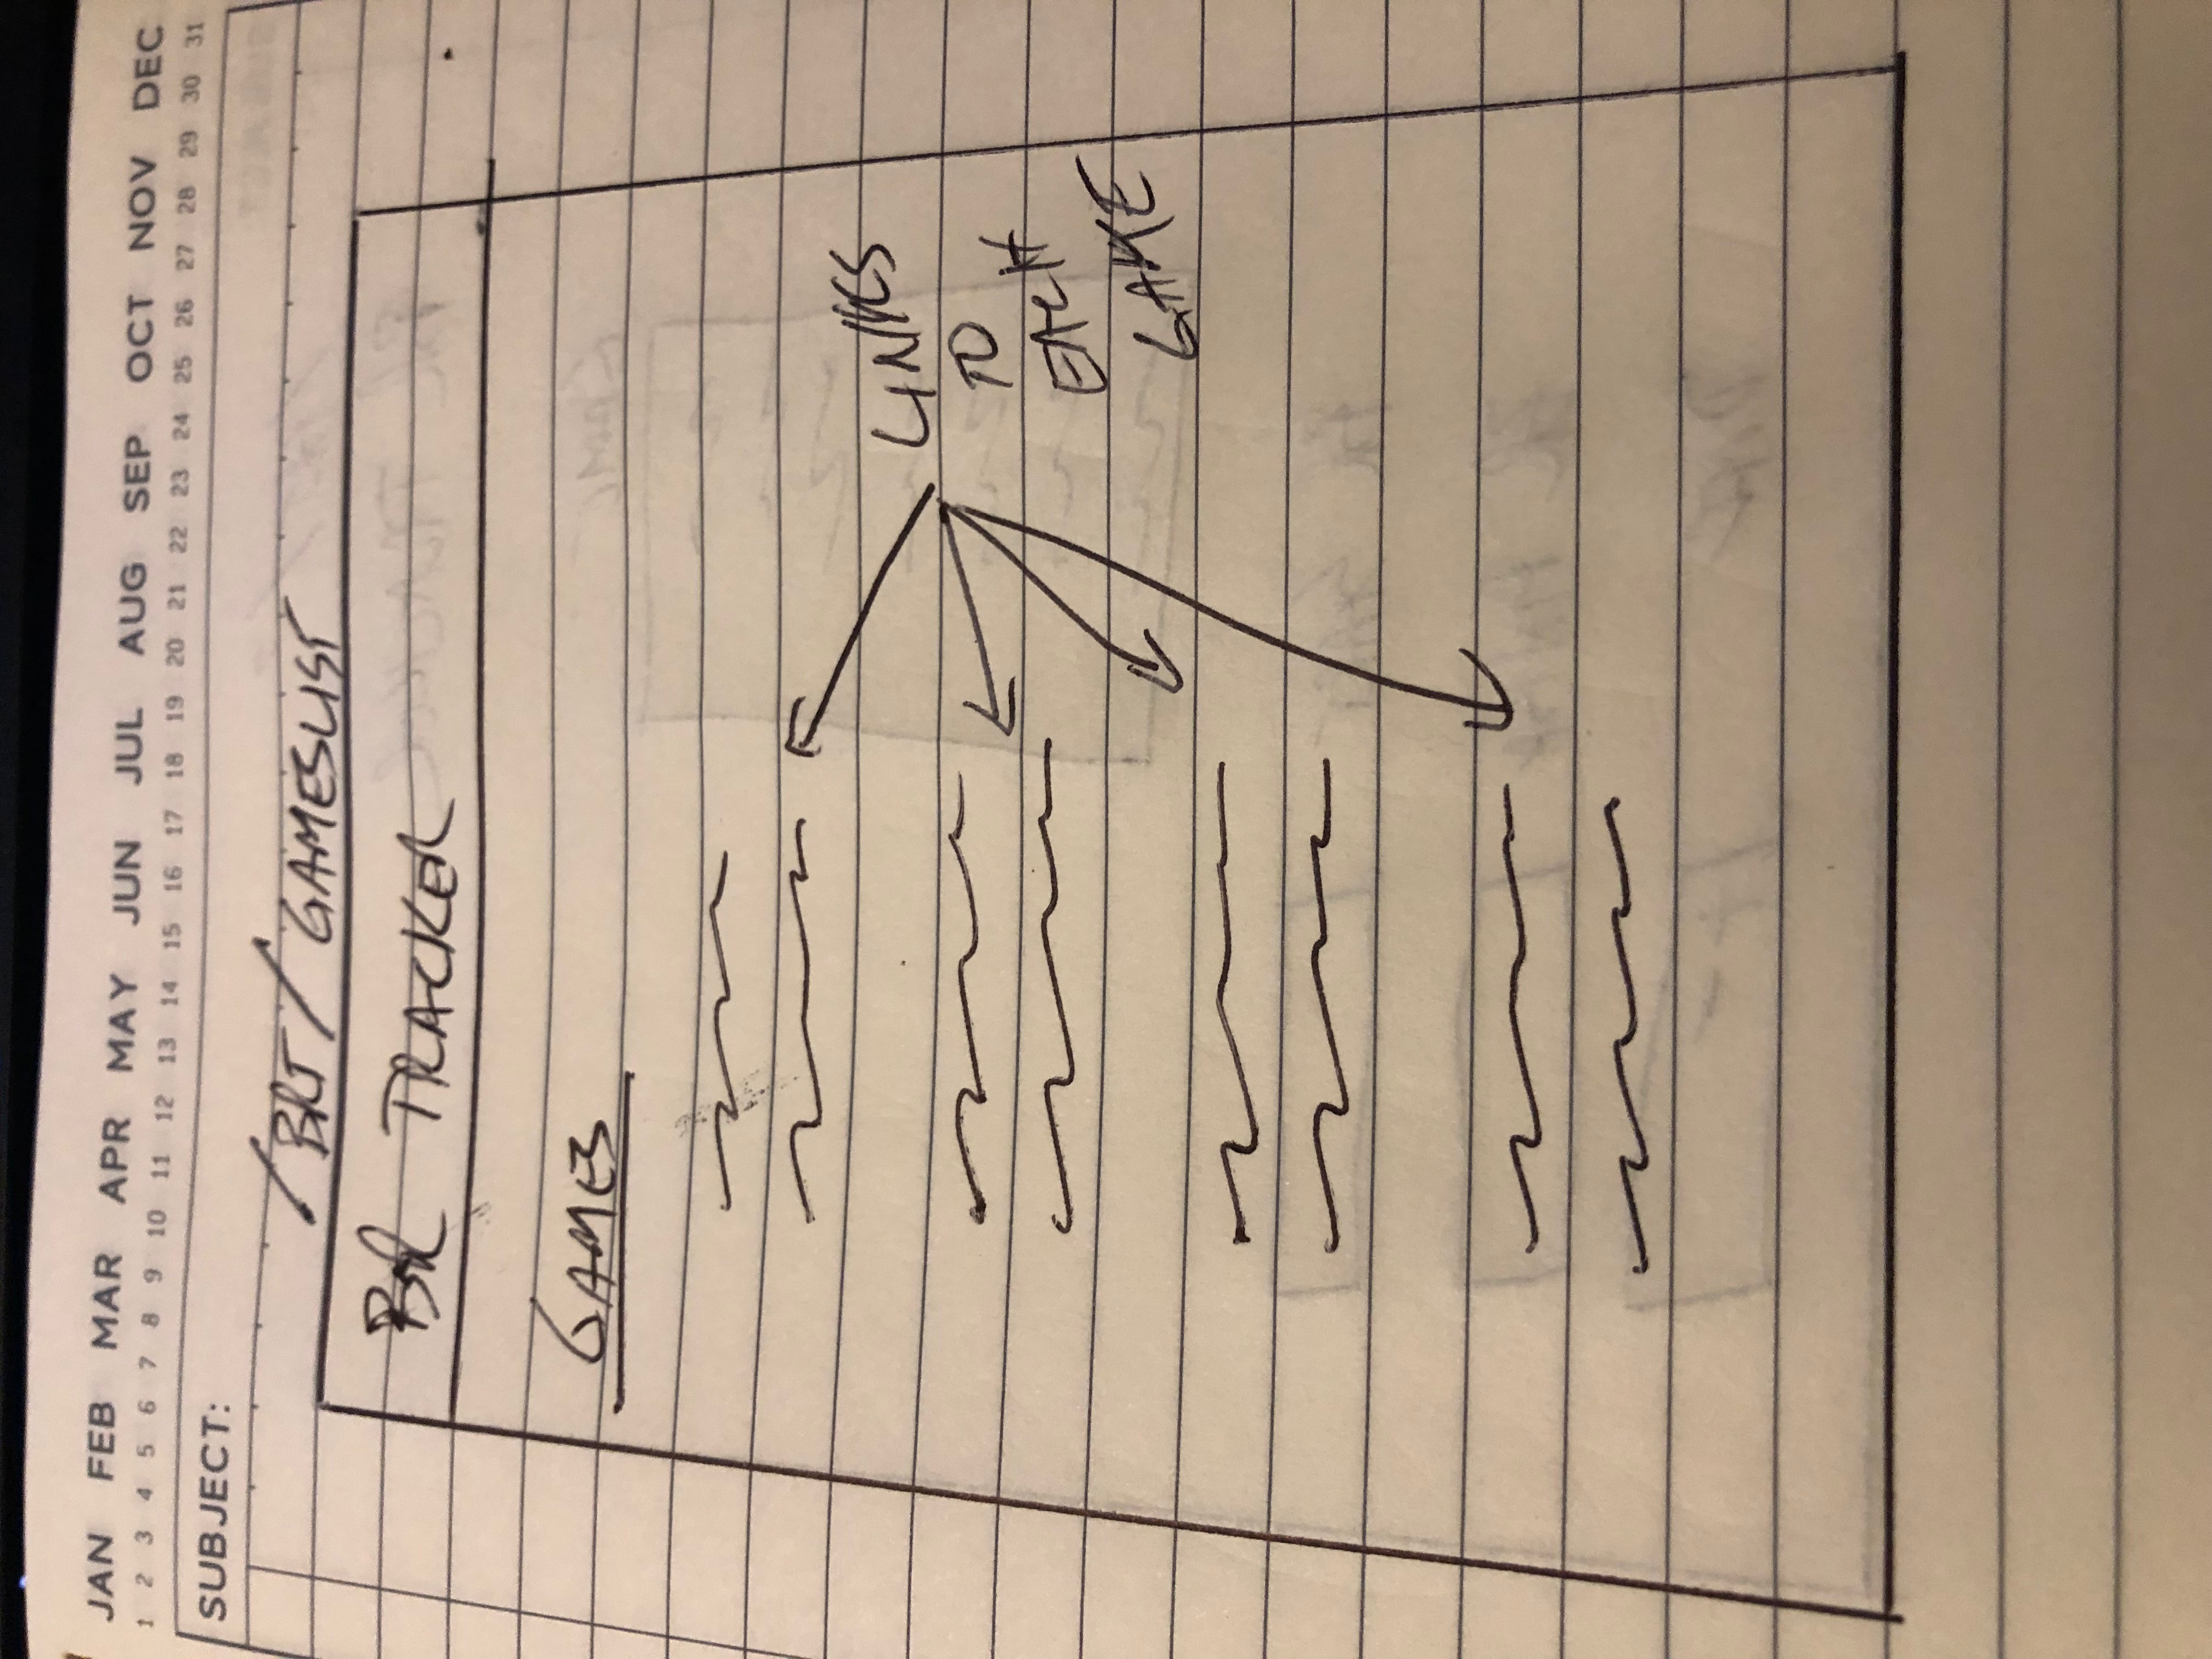 JAN FEB MAR APR MAY JUN JUL AUG SEP OCT NOV DEC
1 2 3 4 5 6 7 8 9 10 11 12 13 14 15 16 17 18 19 20 21 22 23 24 25 26 27 28 29 30 31
SUBJECT:
/BRT/GAMESLIST
BR TRACKER
GAMES
LINKS
TO
EACH
GAME